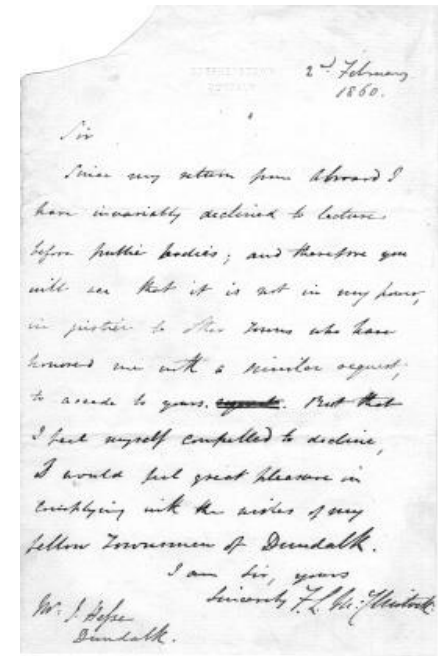 2nd February
1860.
Sir
Since my return from abroad I
have invariably declined to lecture
before public bodies; and therefore you
will see that it is not in my power,
in justice to other Towns who have
honored me with a similar request,
to accede to yours. But that
I feel myself compelled to decline,
I would feel great pleasure in
complying with the wishes of my
fellow Townsmen of Dundalk.
I am Sir, yours
Sincerely F. L. McClintock
Mr. J.
Dundalk.